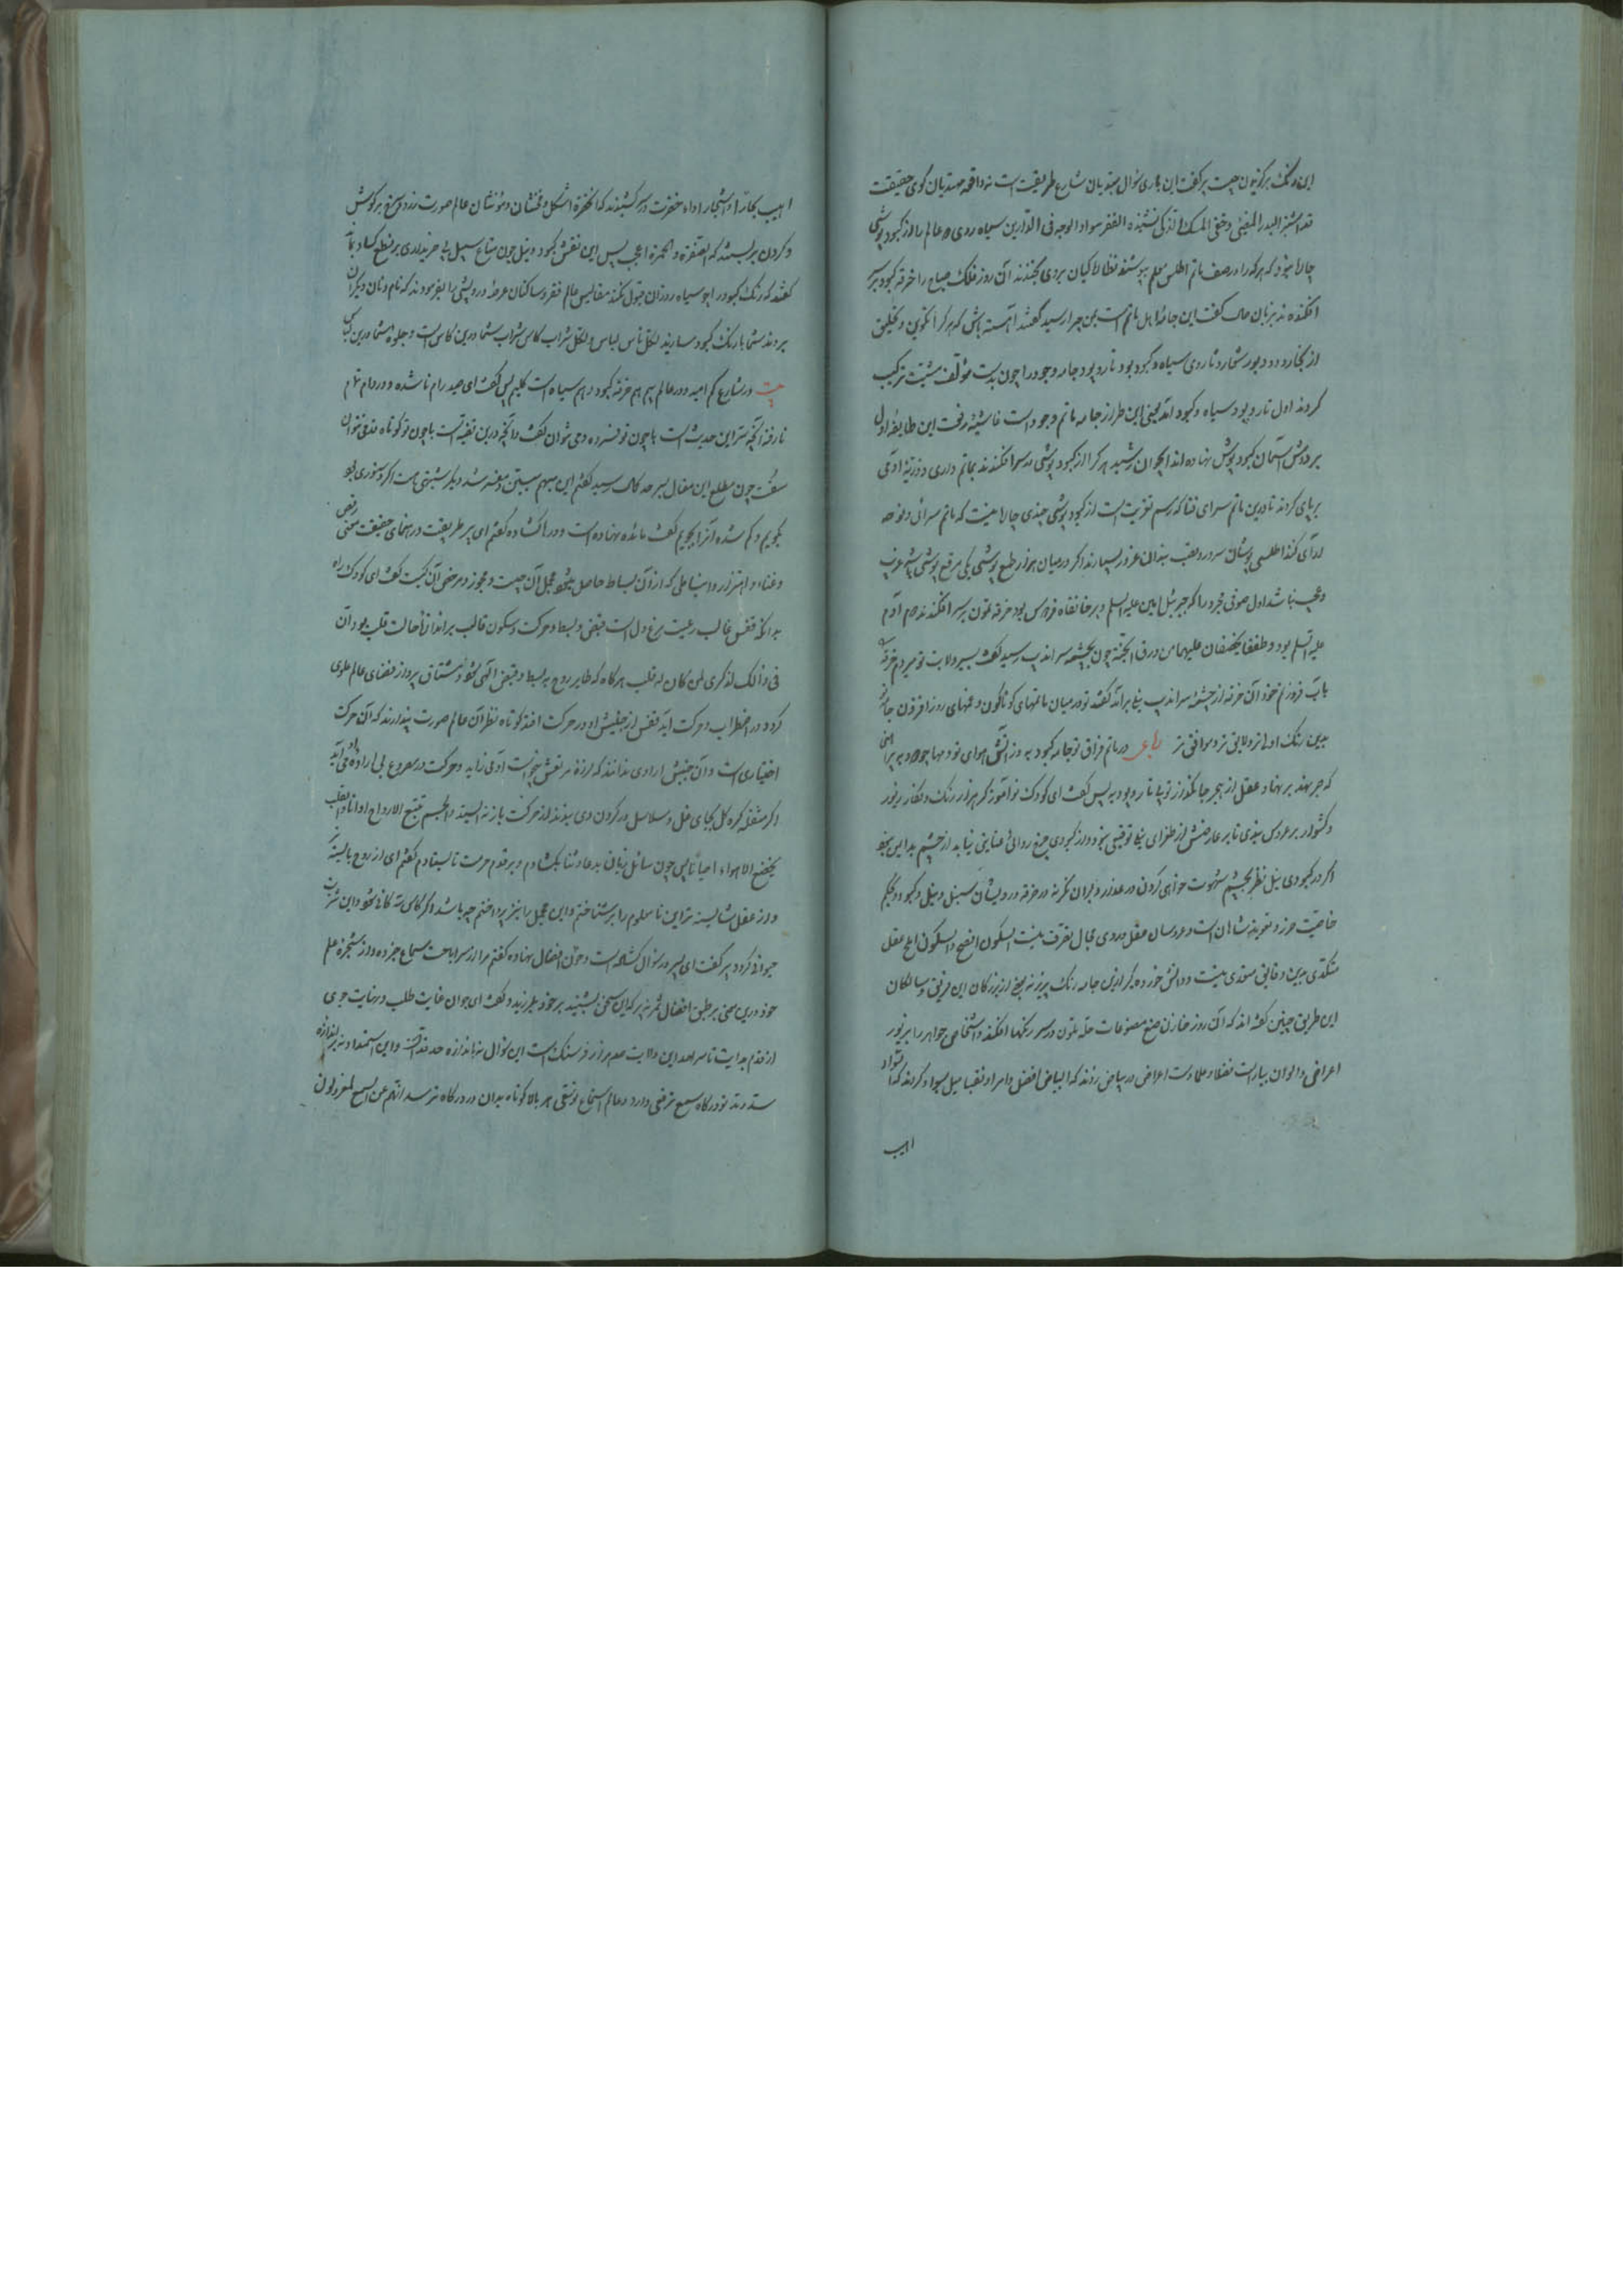 این رنگ برگزیدن چیست پیر گفت این باری سؤال مبتدیان شارع طریقت است نه واقعه مهتدیان کوی حقیقت
قد اشتهر البدر المضیٔ و خفی المسک الذکی نشنیده الفقر سواد الوجه فی الدارین سیاه روی دو عالم را از کبود پوشی
چاره نبود که هرکه را در صف ماتم اطلس معلم پوشند نظارگیان بر وی بخندند آن روز فلک صباغ را خرقه کبود بر سر
افکندند بزبان حال گفت این جامه اهل ماتم است بمن چرا رسید گفتند آهسته باش که هر کرا تکوین و تخلیق
از بخار و دود بود شعار و ثار وی سیاه و کبود بود تار و پود جامه وجود را چون بدست مؤلف مشیت ترکیب
کردند اول تار و پود سیاه و کبود آمد یعنی این طراز جامه ماتم وجود است غاشیهٔ رفت این طایفه اول
بر دوش آسمان کبود پوش نهاده اند ایوان رشید هر کرا از کبود پوشی در سر افکندند بماتم داری ذریهٔ آدمی
برپای کردند تا درین ماتم سرای فنا که رسم تعزیت است از کبود پوشی چندی چاره نیست که ماتم سرائی و نوحه
لرائی کند اطلسی پوشان سرور و لعب بدان عزور بسیارند اگر در میان هزار طمع پوشی یکی مرقع پوشی بود غریب
و عجب نباشد اول صوفی مجرد را که جبرئیل امین علیه السلم در خانقاه فردوس بود خرقه ملون بر سر افکندند آدم
علیه السلم بود و طفقا یخصفان علیهما من ورق الجنة چون بچشمه سراندیب رسید گفت بسیر ولایت تو میروم خرقه
باب فروزنم خود آن خرقه از چشمه سراندیب نیلی برآمد گفتند تو در میان ماتمهای گوناگون و غمهای روز افزون جامه
بدین رنگ اولی‌تر و لایق‌تر و موافق‌تر رباعی در ماتم فراق تو جامه کبود به وز آتش هوای تو دمها چو دود به
که جر نهند بر نهاد عقل از هجر جانگداز تو بی تار و پود به پس گفت ای کودک نوآموز گر هزار رنگ و نگار و زیور
و گشوار بر عروس بندی تا بر عارضش از طغرای نیل توقیعی نبود و از کبودی چرخ روائی عنایتی نیابد از چشم بد ایمن نبود
اگر در کبودی نیل نظر بچشم شهوت خواهی کردن در عذر دلبران نگر نه در خرقه درویشان سبیل و نیل و کبود و بحکم
خاصیت حرز و تعویذ ایشان است و عروسان عقل در وی مجال تصرف نیست السکون افصح و السکوت املح عقل
متکدی بدین دقایق مهتدی نیست و دانش خورده گیر از این جامه رنگ پرزنه نه بیخ از بزرگان این فریق و سالکان
این طریق چنین گفته اند که آن روز خازن صنع مصنوعات حله ملون در سر رنگها افکند و اشخاص جواهر را بزیور
اعراض و الوان بیاراست فقها و علما دست اعراض در بیاض زدند که البیاض افضل و امرا و نقبا میل بسواد کردند که السواد
اهیب
اهیب تجار و اشجار اداء خضرت در سر کشیدند که الخضرة اشکل و مخنثان و مؤنثان عالم صورت زرد و سرخ بر گوش
و گردن بربستند که الصفرة و الحمرة اعجب پس این نقش کبود و نیل چون متاع سبیل بی خریداری بر نطع کساد بماند
گفتند که رنگ کبود را جز سیاه روزان قبول نکنند مفالیس عالم فقر و ساکنان عرصهٔ درویشی را بفرمودند که نام و نان دیگران
بردند شما با رنگ کبود بسازید لکل ناس لباس و لکل شراب کاس شراب شما درین کاس است و جلوه شما درین لباس
بیت در شارع کم امید و در عالم بیم هم خرقه کبود و هم سیاه است گلیم پس گفت ای صید رام ناشده و در دام تمام
نارفته آنچه سر این حدیث است با چون تو فسرده دمی نتوان گفت و آنچه درین نفیه است با چون تو کوتاه قدمی نتوان
سفت چون مطلع این مقال بسرحد کمال رسید گفتم این مبهم مبین و مفسر شد و دیگر شبهتی هست اگر دستوری بود
بگویم و گم شده آنرا بجویم گفت مائده نهاده است و در ها گشاده گفتم ای پیر طریقت و رهنمای حقیقت معنی رقص
و غناء و اهتزاز و انبساطی که از آن بساط حاصل میشود محمل آن چیست و مجوز و مرخص آن کیست گفت ای کودک راه
بدانکه قفس قالب رعیت مرغ دل است قبض و بسط و حرکت و سکون قالب بر اندازهٔ حالت قلب بود ان
فی ذالک لذکری لمن کان له قلب هرگاه که طایر روح به بسط و قبض الهی شود و مشتاق پرواز فضای عالم علوی
گردد در اضطراب و حرکت آید قفس از جنبش او در حرکت افتد کوتاه نظران عالم صورت پندارند که آن حرکت
اختیاری است و آن جنبش ارادی ندانند که لرزهٔ مرتعش نه بخواست آدمی زاید و حرکت در مصروع بی اراده می آید
اگر مشقله کره گل بجای غل و سلاسل در گردن وی بندند از حرکت باز نه ایستد و الجسم تتبع الارواح اوانا و القلب
یخضع الاهواء احیانا پس چون سائل زبان بدعا و ثنا بگشادم و بر قدم حرمت تا بیستادم گفتم ای از روح بایسته تر
و از عقل شایسته تر این نامعلوم را بشناختم و این مجمل را نیز پرداختم چه باشد اگر کاس سه گانی شود و این شربت
حیوانی گردد پیر گفت ای پسر در سؤال گشاده است و خوان افضال نهاده گفتم مرا از سر اباحت سماع خبر ده و از شجره علم
خود درین معنی بر طبق افضال ثمر نه پیر که این سخن بشنید بر خود بلرزید و گفت ای جوان غایت طلب و نهایت جوی
از قدم بدایت تا سرحد این ولایت صد هزار فرسنگ است این سؤال نه باندازه حد قد تست و این استمداد نه باندازهٔ
سد ره تو درگاه سمع ترفعی دارد و عالم استماع توسعی هر بالا کوتاه بدان در درگاه نرسد انهم عن السمع لمعزولون